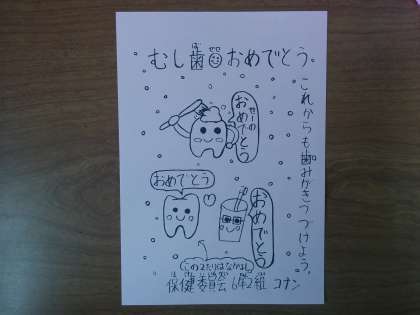 むし歯おめでとう。
これからも歯みがきつづけよう。
せーの
おめでとう
おめでとう
おめでとう
このふたりはなかよし
保健委員会 6年2組 コナン